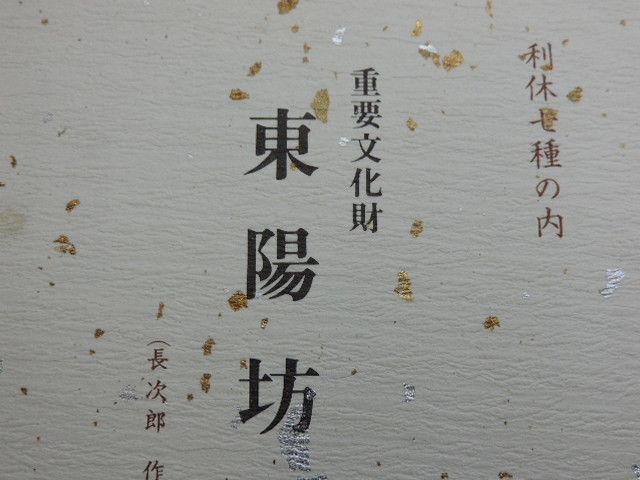 利休七種の内
重要文化財
東陽坊
（長次郎 作